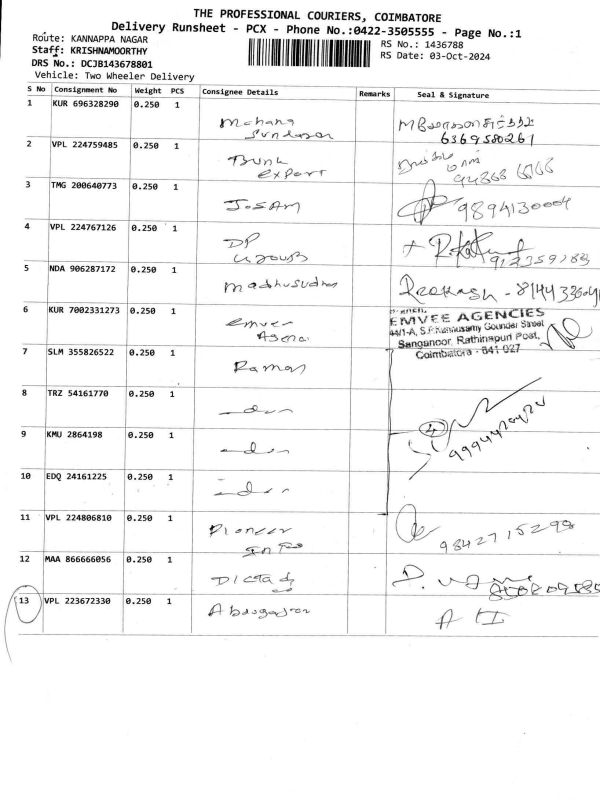 THE PROFESSIONAL COURIERS, COIMBATORE
Delivery Runsheet - PCX - Phone No.:0422-3505555 - Page No.:1
Route: KANNAPPA NAGAR
RS No.: 1436788
Staff: KRISHNAMOORTHY
RS Date: 03-Oct-2024
DRS No.: DCJB143678801
Vehicle: Two Wheeler Delivery
S No Consignment No Weight PCS Consignee Details Remarks Seal & Signature
1 KUR 696328290 0.250 1 Mohana
Sundaram
6369580261
2 VPL 224759485 0.250 1 Trunk
Export
3 TMG 200640773 0.250 1 JoSAM 9894130004
4 VPL 224767126 0.250 1 DP
Group
5 NDA 906287172 0.250 1 Madhusudhan
6 KUR 7002331273 0.250 1 Emvee
EMVEE AGENCIES
44/1-A, S.P. Kannusamy Gounder Street
Sanganoor, Rathinapuri Post,
Coimbatore - 641 027
7 SLM 355826522 0.250 1 Raman
8 TRZ 54161770 0.250 1 -do-
4
9 KMU 2864198 0.250 1 -do-
10 EDQ 24161225 0.250 1 -do-
11 VPL 224806810 0.250 1 Pioneer
Info
9842715298
12 MAA 866666056 0.250 1
13 VPL 223672330 0.250 1